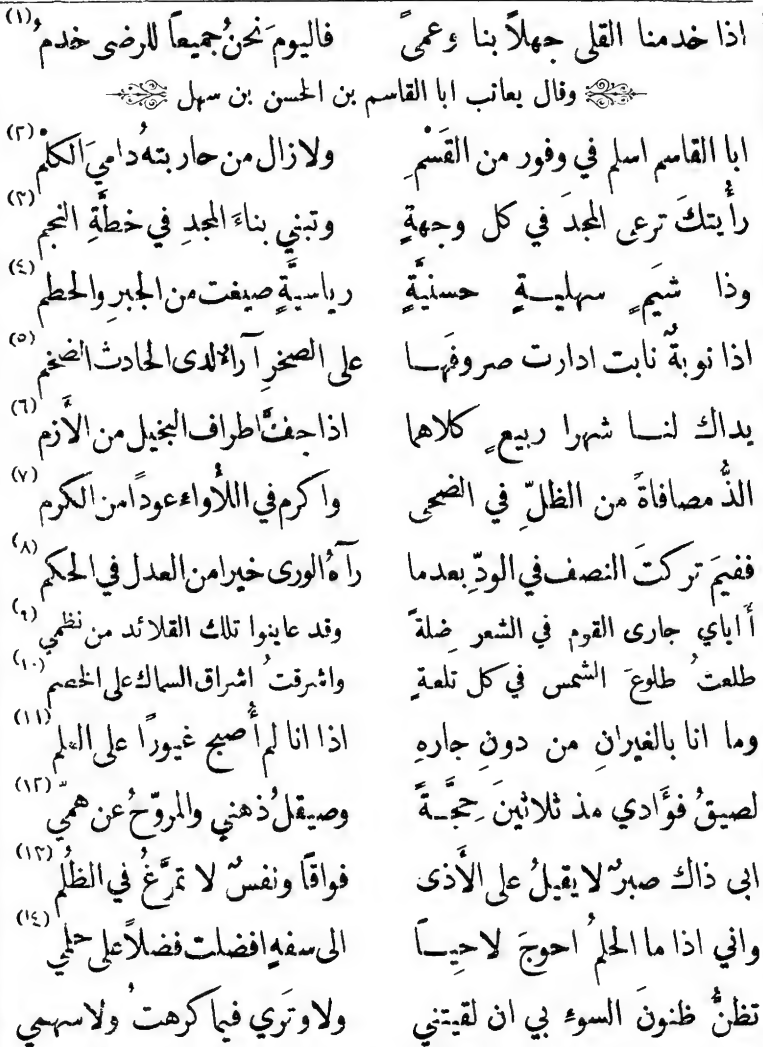 اذا خدمنا القلى جهلاً بنا وعمىً فاليومَ نحنُ جميعاً للرضى خدمُ (١)
وقال يعاتب ابا القاسم بن الحسن بن سهل
ابا القاسم اسلم في وفور من القَسْمِ ولا زال من حاربتهُ دامِيَ الكلْمْ (٢)
رأَيتكَ ترعى المجدَ في كل وجهةٍ وتبني بناءَ المجدِ في خطَّةِ النجم (٣)
وذا شيَمٍ سهليــةٍ حسنيَّةٍ رياسيَّةٍ صيغت من الجبرِ والحطم (٤)
اذا نوبةٌ نابت ادارت صروفَهــا على الصخرِ آراءً لدى الحادث الضخم (٥)
يداك لنــا شهرا ربيعٍ كلاهما اذا جفَّ اطراف البخيل من الأَزم (٦)
الذُّ مصافاةً من الظلّ في الضحى واكرم في اللأْواء عوداً من الكرم (٧)
ففيمَ تركتَ النصف في الودِّ بعدما رآهُ الورى خيرا من العدل في الحكم (٨)
أَاباي جارى القوم في الشعر ضلةً وقد عاينوا تلك القلائد من نظمي (٩)
طلعتُ طلوعَ الشمس في كل تلعةٍ واشرقتُ اشراق السماك على الخصم (١٠)
وما انا بالغيرانِ من دونِ جارهِ اذا انا لم أُصبح غيورًا على العلم (١١)
لصيقُ فؤَادي مذ ثلاثينَ حجَّــةً وصيقلُ ذهني والمروّحُ عن همّي (١٢)
ابى ذاك صبرٌ لا يقيلُ على الأَذى فواقاً ونفسٌ لا تمرَّغُ في الظُلْم (١٣)
واني اذا ما الحلمُ احوجَ لاحيــاً الى سفهٍ افضلت فضلاً على حلمي (١٤)
تظنُّ ظنونَ السوءِ بي ان لقيتني ولا وتَري فيما كرهتُ ولا سهمي